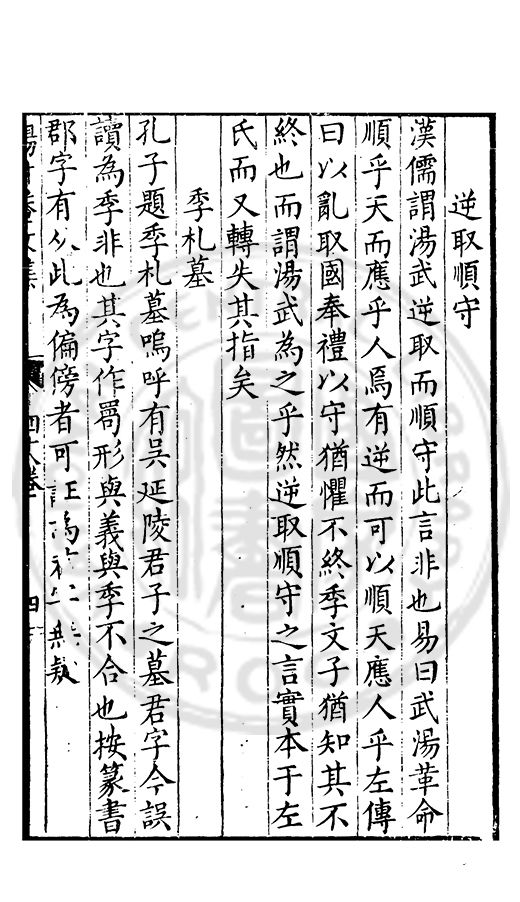 逆取順守
漢儒謂湯武逆取而順守此言非也易曰武湯革命
順乎天而應乎人焉有逆而可以順天應人乎左傳
曰以亂取國奉禮以守猶懼不終季文子猶知其不
終也而謂湯武為之乎然逆取順守之言實本于左
氏而又轉失其指矣
季札墓
孔子題季札墓嗚呼有吳延陵君子之墓君字今誤
讀為季非也其字作𠱭形與義與季不合也按篆書
郡字有从此為偏傍者可証